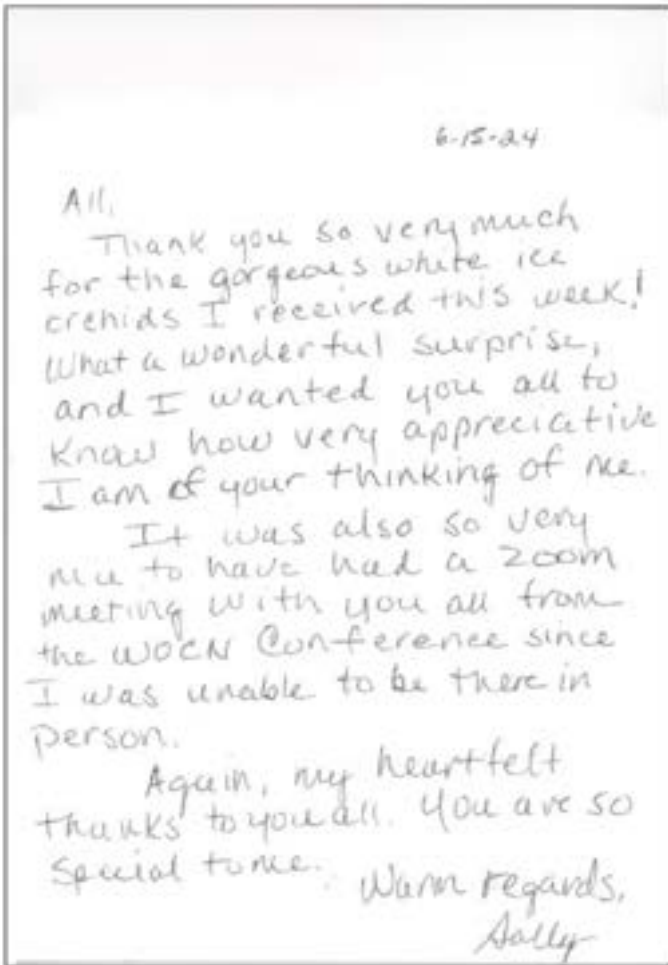 6-15-24
All,
Thank you so very much
for the gorgeous white ice
orchids I received this week!
What a wonderful surprise,
and I wanted you all to
know how very appreciative
I am of your thinking of me.
It was also so very
nice to have had a zoom
meeting with you all from
the WOCN Conference since
I was unable to be there in
person.
Again, my heartfelt
thanks to you all. You are so
special to me.
Warm regards,
Sally